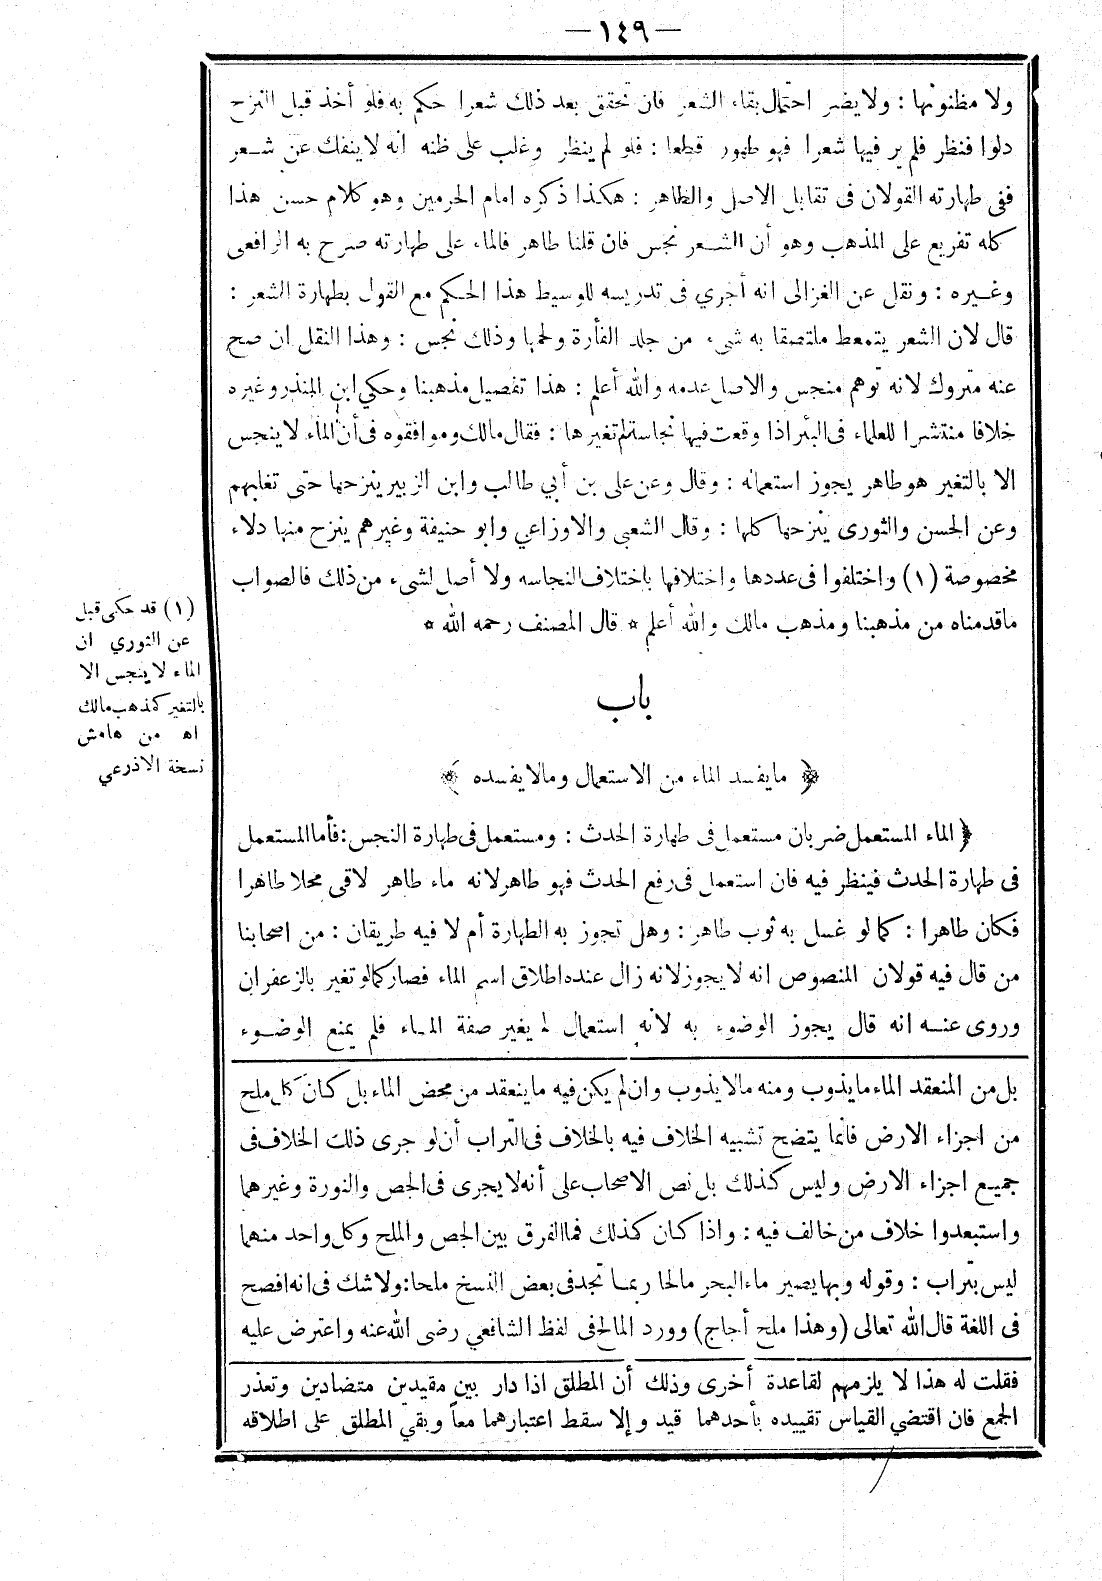 — ١٤٩ —
ولا مظنونها : ولا يضر احتمال بقاء الشعر فان تحقق بعد ذلك شعرا حكم به فلو أخذ قبل النزح
دلوا فنظر فلم ير فيها شعرا فهو طهور قطعا : فلو لم ينظر وغلب على ظنه انه لا ينفك عن شعر
ففى طهارته القولان فى تقابل الاصل والظاهر : هكذا ذكره امام الحرمين وهو كلام حسن هذا
كله تفريع على المذهب وهو أن الشعر نجس فان قلنا طاهر فالماء على طهارته صرح به الرافعى
وغيره : ونقل عن الغزالى انه أجري فى تدريسه للوسيط هذا الحكم مع القول بطهارة الشعر :
قال لان الشعر يتمعط ملتصقا به شيء من جلد الفأرة ولحمها وذلك نجس : وهذا النقل ان صح
عنه متروك لانه توهم منجس والاصل عدمه والله أعلم : هذا تفصيل مذهبنا وحكي ابن المنذر وغيره
خلافا منتشرا للعلماء فى البئر اذا وقعت فيها نجاسة لم تغيرها : فقال مالك وموافقوه فى أن الماء لا ينجس
الا بالتغير هو طاهر يجوز استعماله : وقال وعن على بن أبي طالب وابن الزبير ينزحها حتى تغلبهم
وعن الحسن والثورى ينزحها كلها : وقال الشعبي والاوزاعي وابو حنيفة وغيرهم ينزح منها دلاء
مخصوصة (١) واختلفوا فى عددها واختلافها باختلاف النجاسه ولا أصل لشيء من ذلك فالصواب
ماقدمناه من مذهبنا ومذهب مالك والله أعلم * قال المصنف رحمه الله *
(١) قد حكى قبل
عن الثوري ان
الماء لا ينجس الا
بالتغير كمذهب مالك
اه من هامش
نسخة الاذرعي
باب
﴿ ما يفسد الماء من الاستعمال ومالا يفسده ﴾
﴿ الماء المستعمل ضربان مستعمل فى طهارة الحدث : ومستعمل فى طهارة النجس : فأما المستعمل
فى طهارة الحدث فينظر فيه فان استعمل فى رفع الحدث فهو طاهر لانه ماء طاهر لاقى محلا طاهرا
فكان طاهرا : كما لو غسل به ثوب طاهر : وهل تجوز به الطهارة أم لا فيه طريقان : من اصحابنا
من قال فيه قولان المنصوص انه لا يجوز لانه زال عنده اطلاق اسم الماء فصار كما لو تغير بالزعفران
وروى عنه انه قال يجوز الوضوء به لأنه استعمال لم يغير صفة الماء فلم يمنع الوضوء
بل من المنعقد الماء ما يذوب ومنه مالا يذوب وان لم يكن فيه ما ينعقد من محض الماء بل كان كل ملح
من اجزاء الارض فانما يتضح تشبيه الخلاف فيه بالخلاف فى التراب أن لو جرى ذلك الخلاف فى
جميع اجزاء الارض وليس كذلك بل نص الاصحاب على أنه لا يجرى فى الجص والنورة وغيرهما
واستبعدوا خلاف من خالف فيه : واذا كان كذلك فما الفرق بين الجص والملح وكل واحد منهما
ليس بتراب : وقوله وبها يصير ماء البحر مالحا ربما تجد فى بعض النسخ ملحا : ولا شك فى انه افصح
فى اللغة قال الله تعالى (وهذا ملح أجاج) وورد المالح فى لفظ الشافعي رضى الله عنه واعترض عليه
فقلت له هذا لا يلزمهم لقاعدة أخرى وذلك أن المطلق اذا دار بين مقيدين متضادين وتعذر
الجمع فان اقتضي القياس تقييده بأحدهما قيد وإلا سقط اعتبارهما معاً وبقي المطلق على اطلاقه